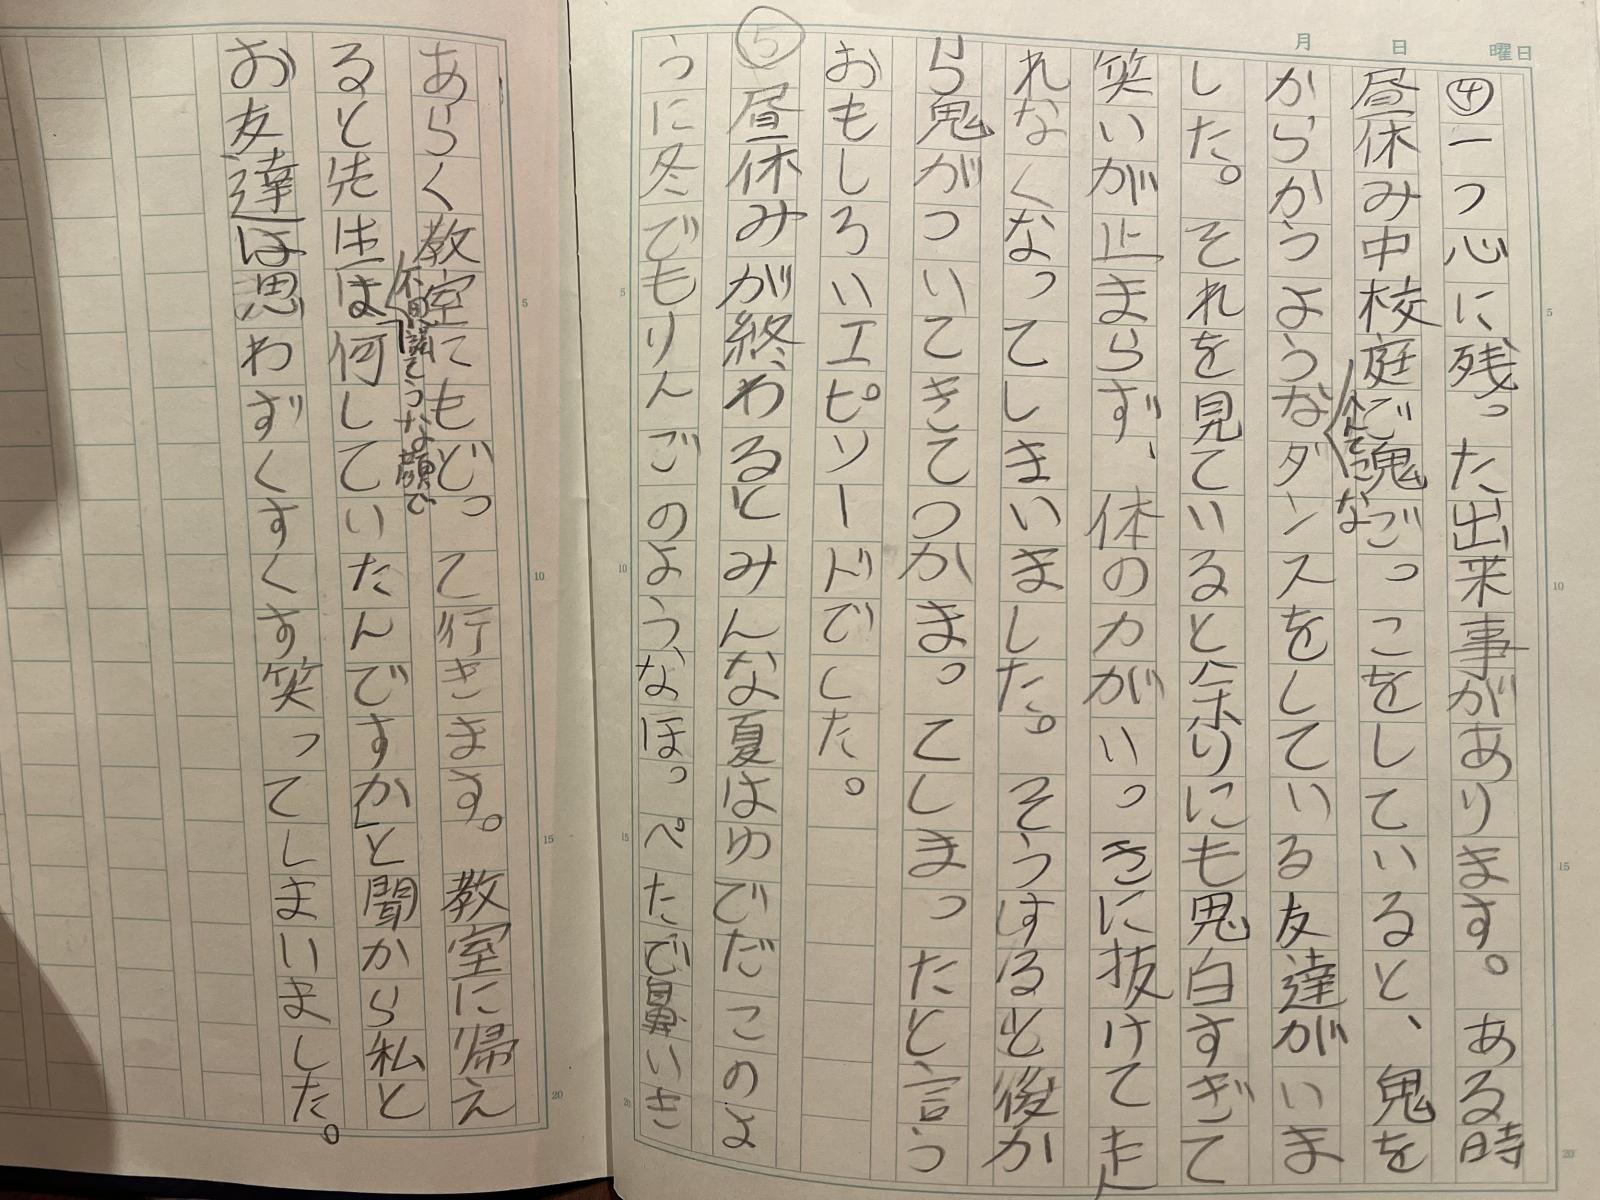 月 日 曜日
④一つ心に残った出来事があります。ある時
昼休み中校庭で鬼ごっこをしていると、鬼を
へんてこな
からかうようなダンスをしている友達がいま
した。それを見ていると余りにも鬼白すぎて
笑いが止まらず、体の力がいっきに抜けて走
れなくなってしまいました。そうすると後か
ら鬼がついてきてつかまってしまったと言う
おもしろいエピソードでした。
⑤昼休みが終わるとみんな夏はゆでだこのよ
うに冬でもりんごのようなほっぺたで鼻いき
あらく教室にもどって行きます。教室に帰え
不思議そうな顔で
ると先生は「何していたんですか」と聞から私と
お友達は思わずくすくす笑ってしまいました。
5
10
15
20
5
10
15
20
5
10
15
20